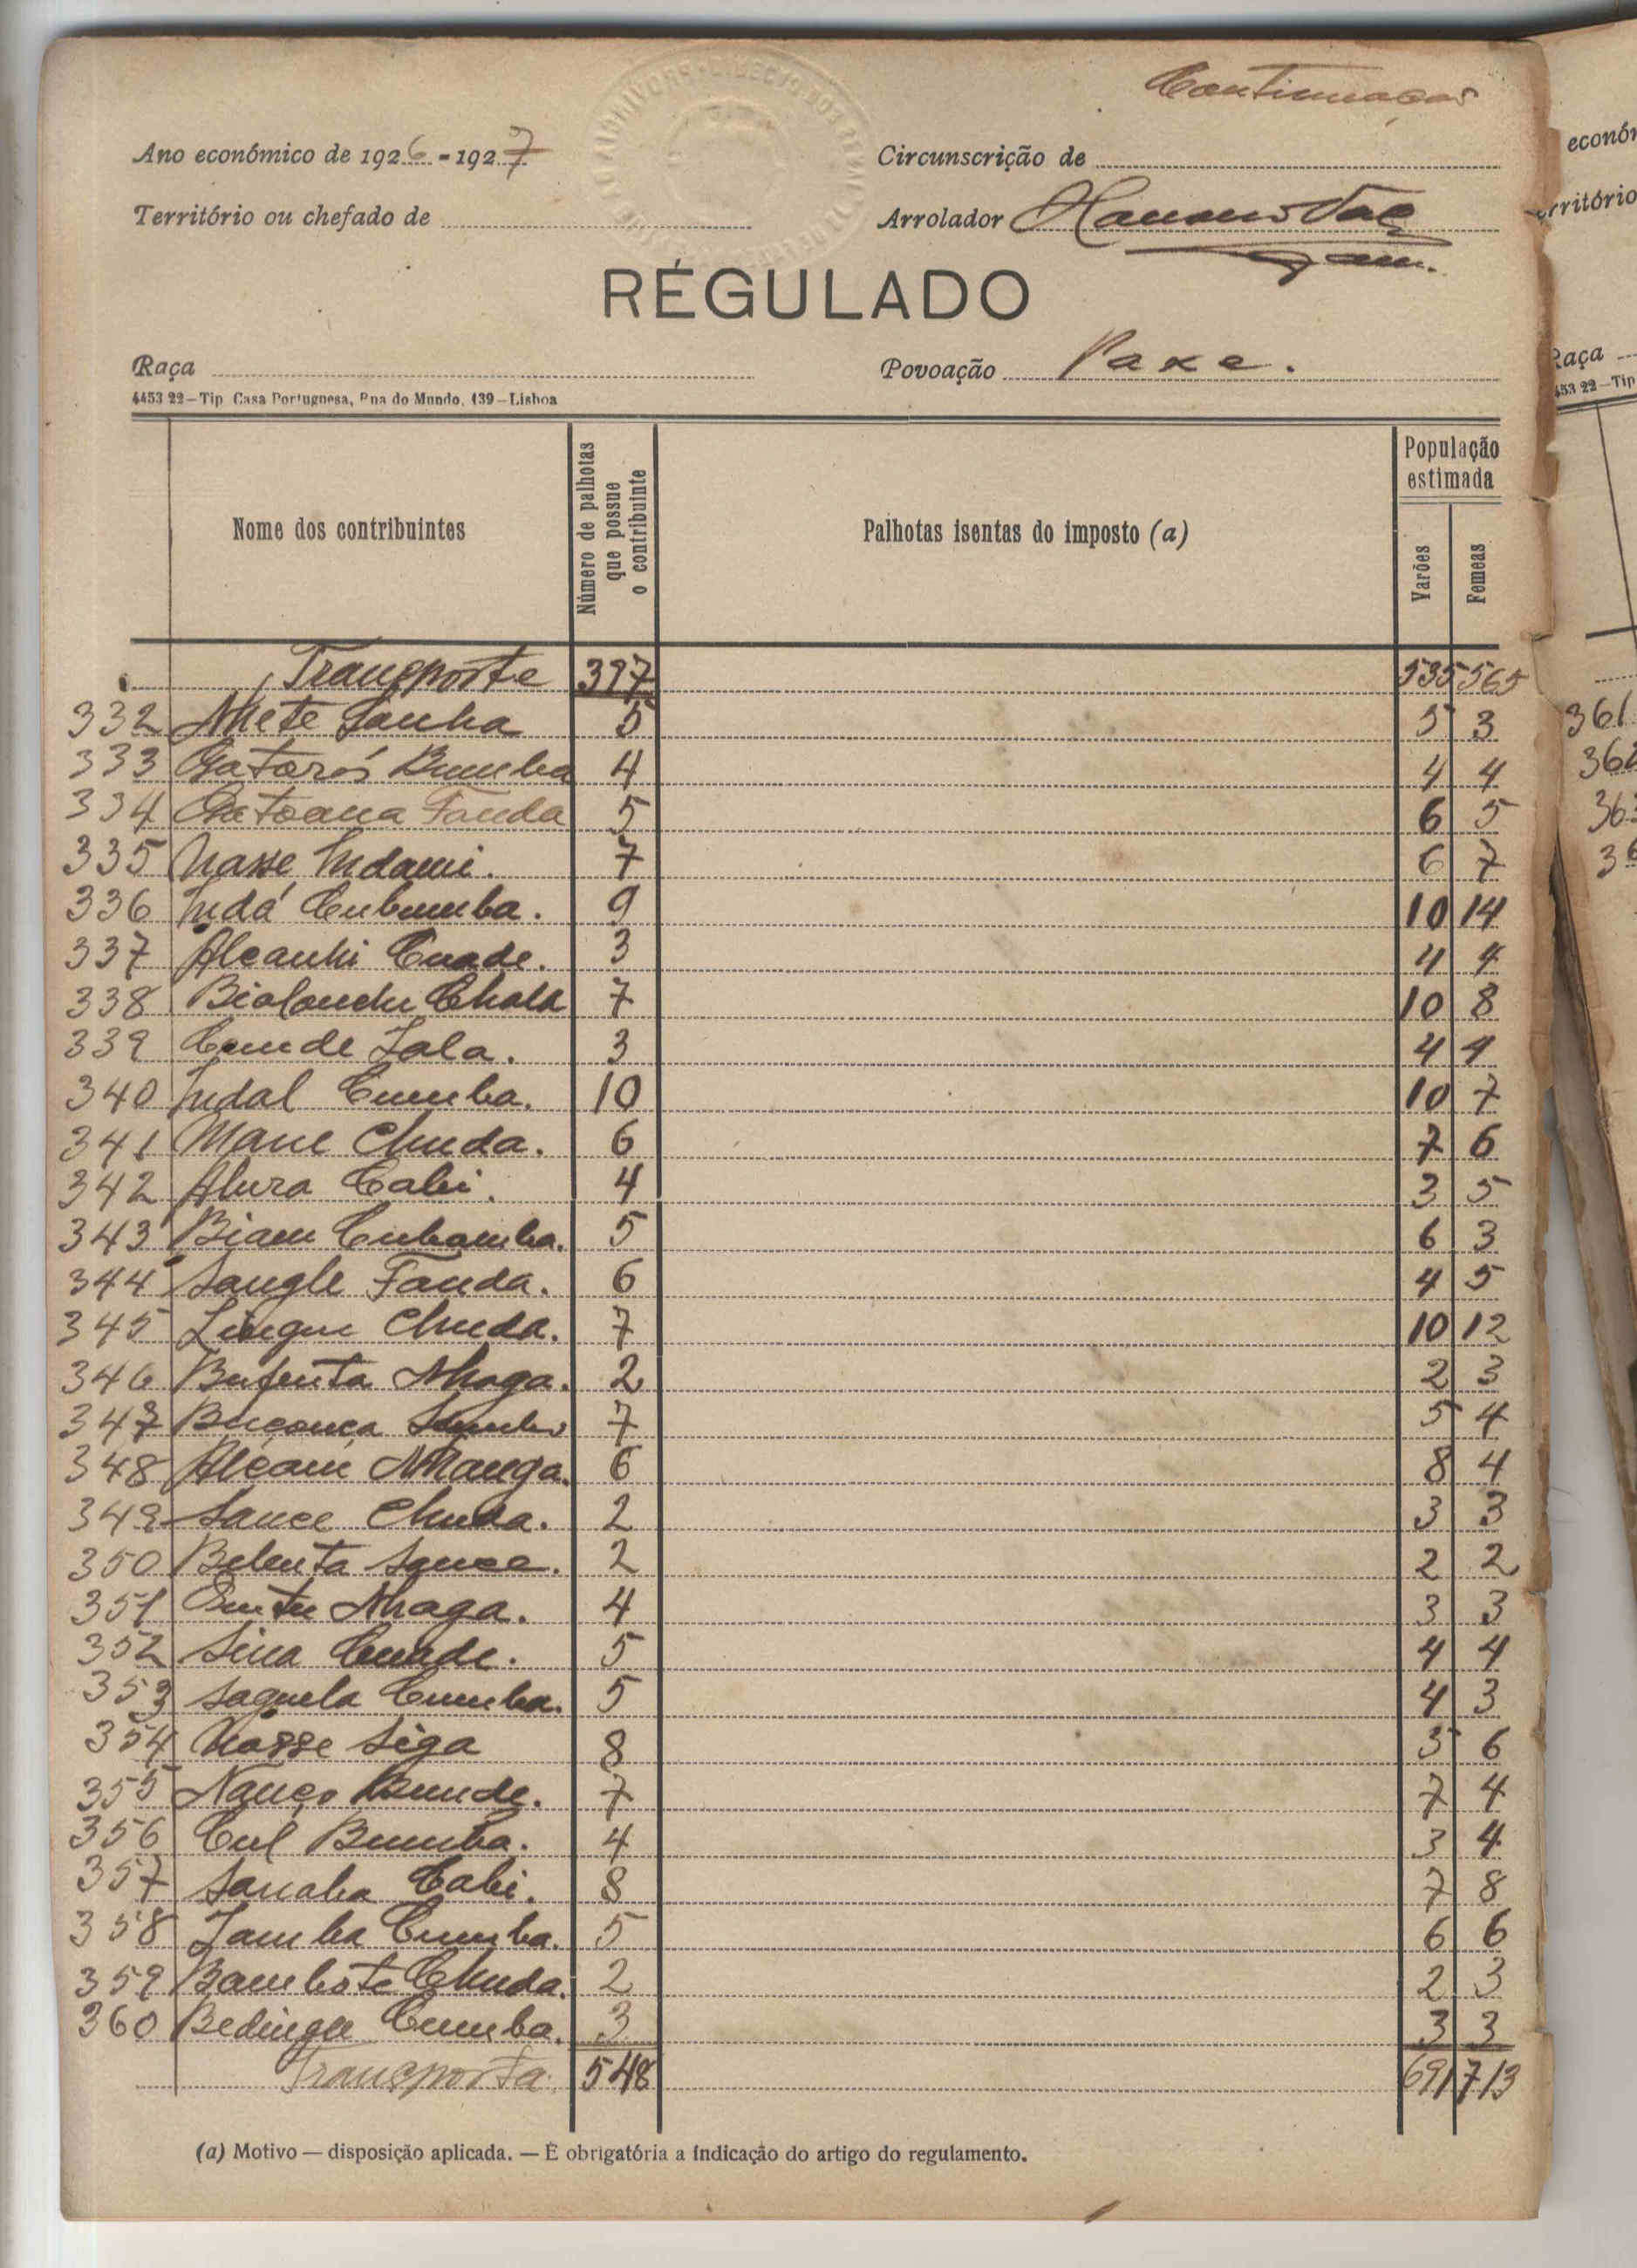 Continuação
Ano económico de 1926-1927
Circunscrição de
Território ou chefado de
Arrolador
RÉGULADO
Raça
Povoação Paxe.
4453 22—Tip Casa Portuguesa, Rua do Mundo, 139—Lisboa
Nome dos contribuintes
Número de palhotas que possue o contribuinte
Palhotas isentas do imposto (a)
População estimada
Varões
Femeas
Transporte 397 535 565
332 Nhete Sanha 5 5 3
333 Gatorós Bumba 4 4 4
334 Gatoana Fanda 5 6 5
335 Nasse Indami. 7 6 7
336 Indá Cubumba. 9 10 14
337 Aleanhi Cuade. 3 4 4
338 Biolanchu Chala 7 10 8
339 Cumde Iala. 3 4 4
340 Indal Cumba. 10 10 7
341 Mane Chuda. 6 7 6
342 Alura Cabi. 4 3 5
343 Biam Cubamba. 5 6 3
344 Sangle Fanda. 6 4 5
345 Lingur Chuda. 7 10 12
346 Bufenta Nhaga. 2 2 3
347 Buçança 7 5 4
348 Aleam Nhanga. 6 8 4
349 Sance Chuda. 2 3 3
350 Belenta Sance. 2 2 2
351 Nhaga. 4 3 3
352 Sina Cuade. 5 4 4
353 Saguela Cumba. 5 4 3
354 Nasse Siga 8 5 6
355 Nanço Bumde. 7 7 4
356 Cul Bumba. 4 3 4
357 Sanaha Cabi. 8 7 8
358 Iamba Cumba. 5 6 6
359 Bambote Chuda. 2 2 3
360 Bedingle Cumba. 3 3 3
Transporta 548 691 713
(a) Motivo — disposição aplicada. — É obrigatória a indicação do artigo do regulamento.
econó
rritório
Raça
453 22—Tip
361
362
363